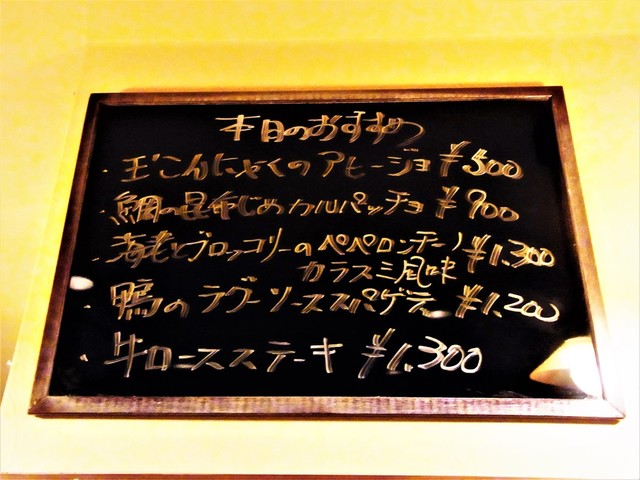 本日のおすすめ
・玉こんにゃくのアヒージョ ¥500
・鯛の昆布じめカルパッチョ ¥900
・海老とブロッコリーのペペロンチーノ ¥1.300
カラスミ風味
・鴨のラグーソーススパゲティ ¥1.200
・牛ロースステーキ ¥1.300